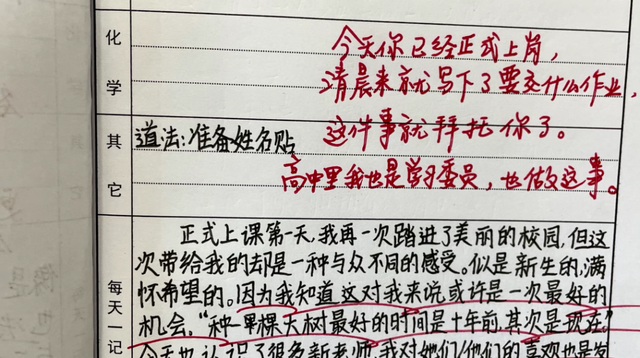 化学
今天你已经正式上岗，
清晨来就写下了要交什么作业，
这件事就拜托你了。
其它
道法：准备姓名贴
高中里我也是学习委员，也做这事。
每天一记
正式上课第一天，我再一次踏进了美丽的校园，但这
次带给我的却是一种与众不同的感受。似是新生的，满
怀希望的。因为我知道这对我来说或许是一次最好的
机会。“种一棵大树最好的时间是十年前，其次是现在。”
今天也认识了很多新老师，我对她们/他们的喜欢也是发